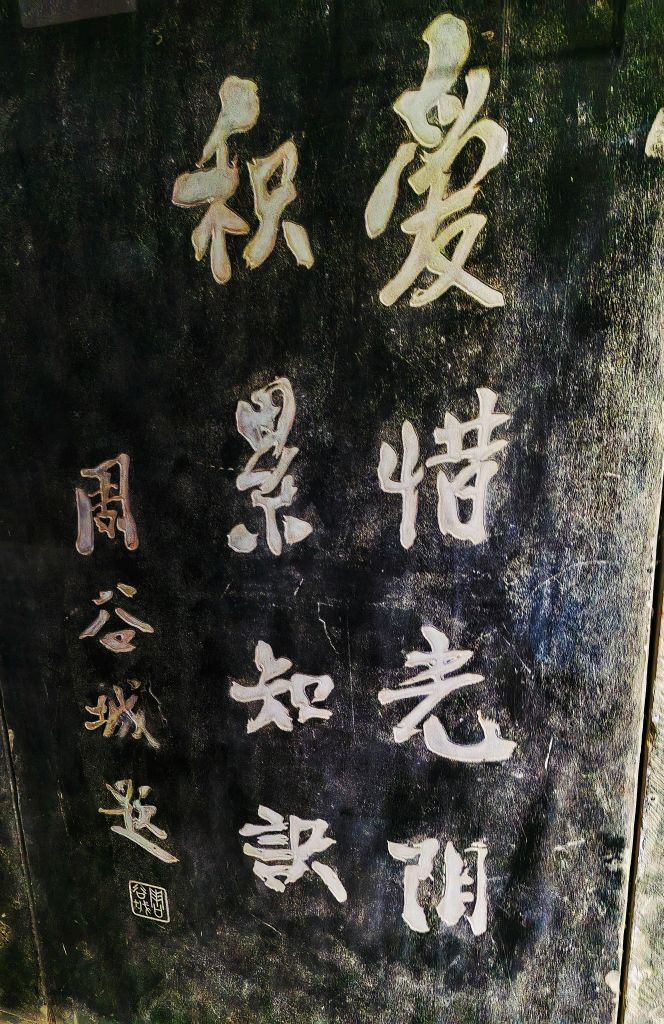 爱惜光阴
积累知识
周谷城题
周谷城